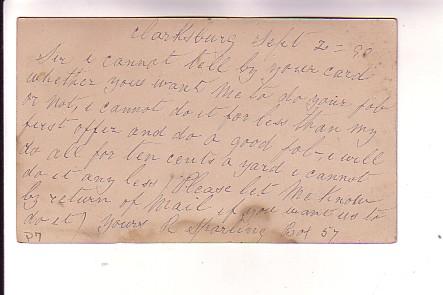 Clarksburg Sept 2 = 90
Sir i cannot tell by your card
whether you want me to do your job
or not, i cannot do it for less than my
first offer and do a good job. i will
do all for ten cents a yard i cannot
do it any less Please let me know
by return of mail if you want us to
do it) yours R Sparling Box 57
P7